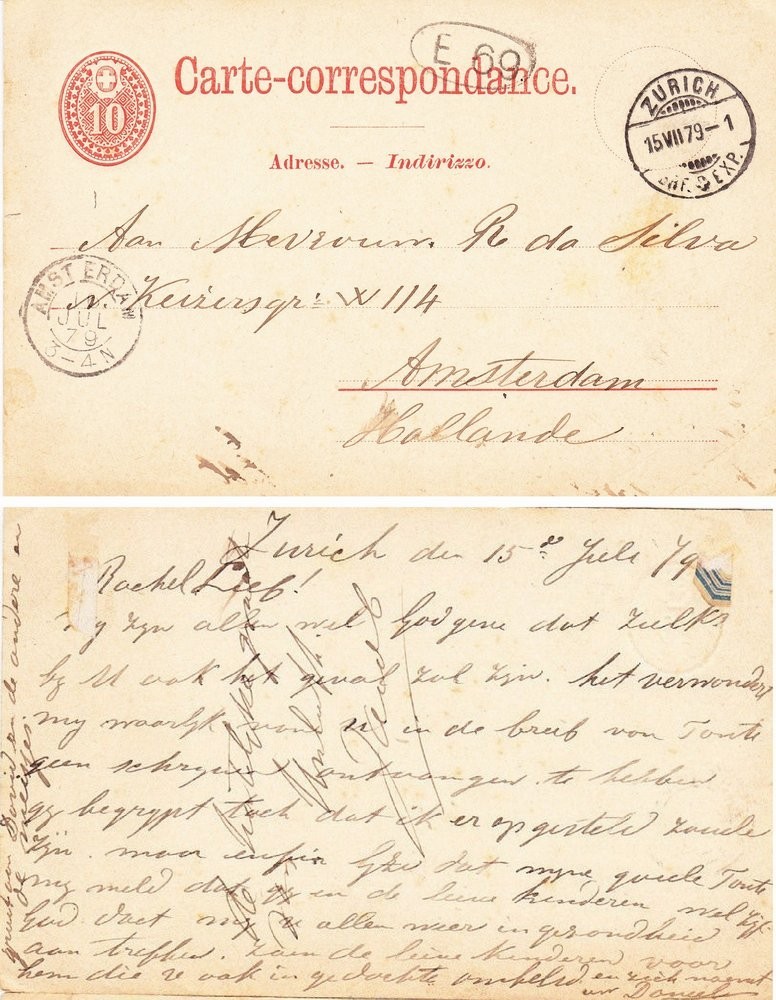 E 69.
10
Carte-correspondance.
ZÜRICH
15 VII 79 – 1
BRF. & EXP.
Adresse. — Indirizzo.
Aan Mevrouw. R da Silva
N. Keizersgr: W 114
AMSTERDAM
JUL
79
3–4 N
Amsterdam
Hollande
Zurich den 15de Juli /79
Rachel Lief!
Wy zyn allen wel God geve dat zulks
by U ook het geval zal zyn. het verwondert
my waarlyk van u in de brief van Tante
geen schryven ontvangen te hebben
gy begrypt toch dat ik er op gesteld zoude
zyn. maar enfin dat myne goede Tante
my meld dat gy en de lieve kinderen wel zyt
God doet my u allen weer in gezondheid
aan treffen. Zoen de lieve kinderen voor
hem die u ook in gedachte omhelsd en zoch noemt
uw Daniel
groet aan David en de andere en
de meisjes.